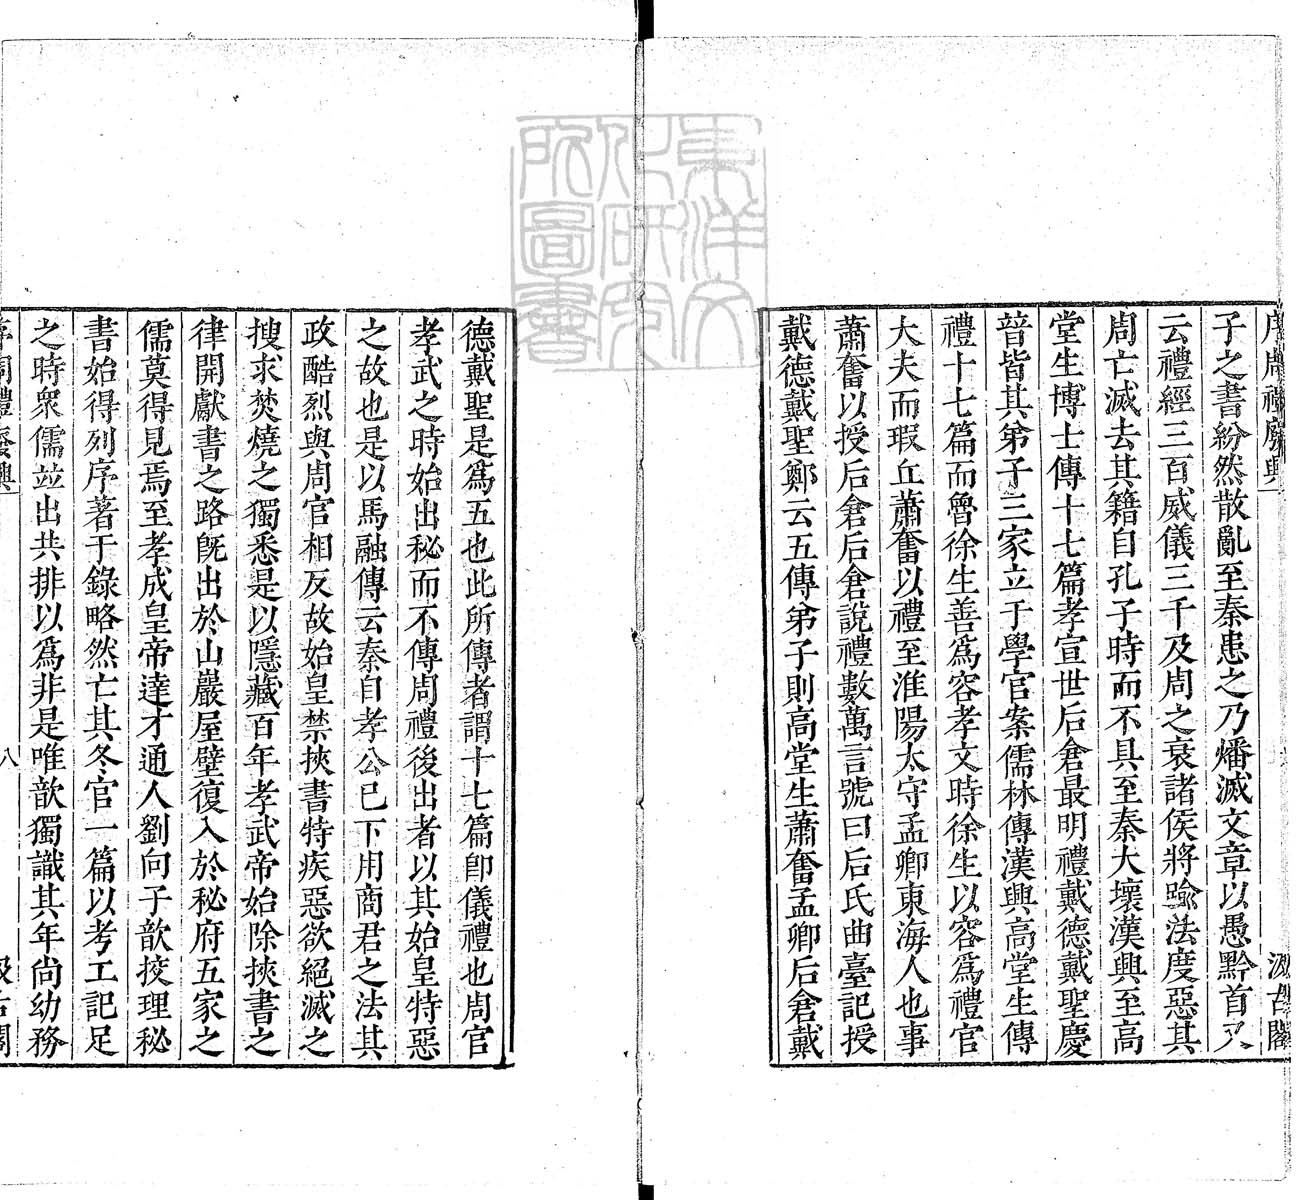 序周禮廢興
汲古閣
子之書紛然散亂至秦患之乃燔滅文章以愚黔首又
云禮經三百威儀三千及周之衰諸侯將踰法度惡其
周亡滅去其籍自孔子時而不具至秦大壞漢興至高
堂生博士傳十七篇孝宣世后倉最明禮戴德戴聖慶
普皆其弟子三家立于學官案儒林傳漢興高堂生傳
禮十七篇而魯徐生善爲容孝文時徐生以容爲禮官
大夫而瑕丘蕭奮以禮至淮陽太守孟卿東海人也事
蕭奮以授后倉后倉說禮數萬言號曰后氏曲臺記授
戴德戴聖鄭云五傳弟子則高堂生蕭奮孟卿后倉戴
東洋文化研究所圖書
德戴聖是爲五也此所傳者謂十七篇卽儀禮也周官
孝武之時始出秘而不傳周禮後出者以其始皇特惡
之故也是以馬融傳云秦自孝公已下用商君之法其
政酷烈與周官相反故始皇禁挾書特疾惡欲絕滅之
搜求焚燒之獨悉是以隱藏百年孝武帝始除挾書之
律開獻書之路旣出於山巖屋壁復入於秘府五家之
儒莫得見焉至孝成皇帝達才通人劉向子歆挍理秘
書始得列序著于錄略然亡其冬官一篇以考工記足
之時衆儒並出共排以爲非是唯歆獨識其年尙幼務
序周禮廢興
八
汲古閣